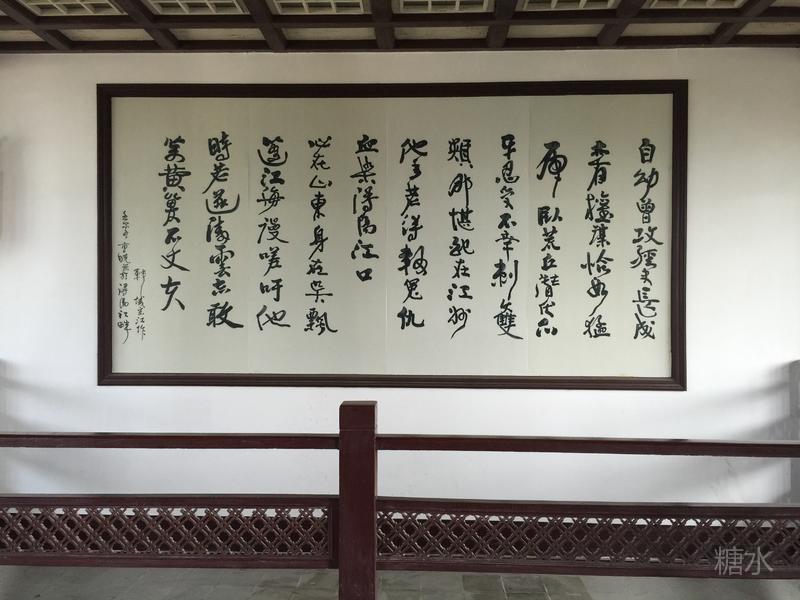 自幼曾攻經史長成
亦有權謀恰如猛
虎臥荒丘潛伏爪
牙忍受不幸刺雙
頰那堪配在江州
他年若得報冤仇
血染潯陽江口
心在山東身在吳飄
蓬江海謾嗟吁他
時若遂凌雲志敢
笑黃巢不丈夫
宋江作
潯陽江畔
糖水